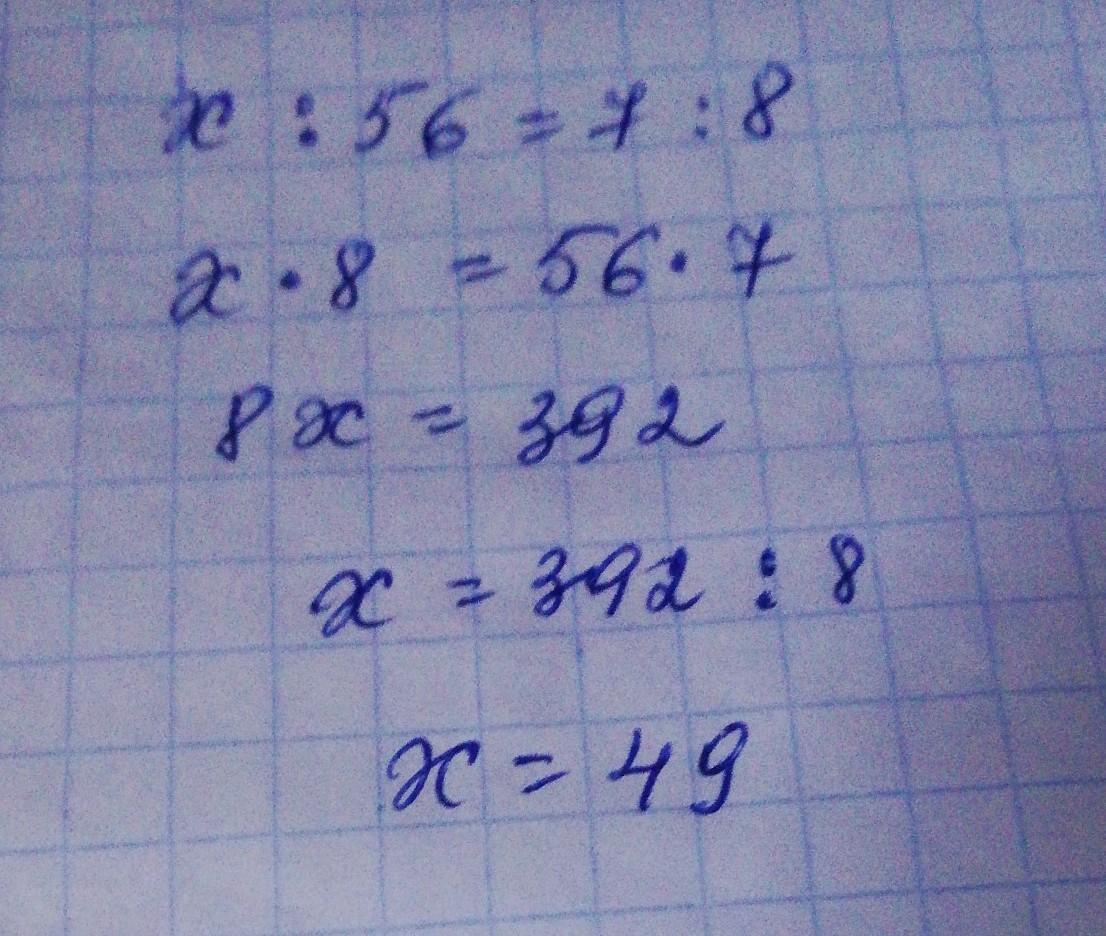 x : 56 = 7 : 8
x · 8 = 56 · 7
8x = 392
x = 392 : 8
x = 49